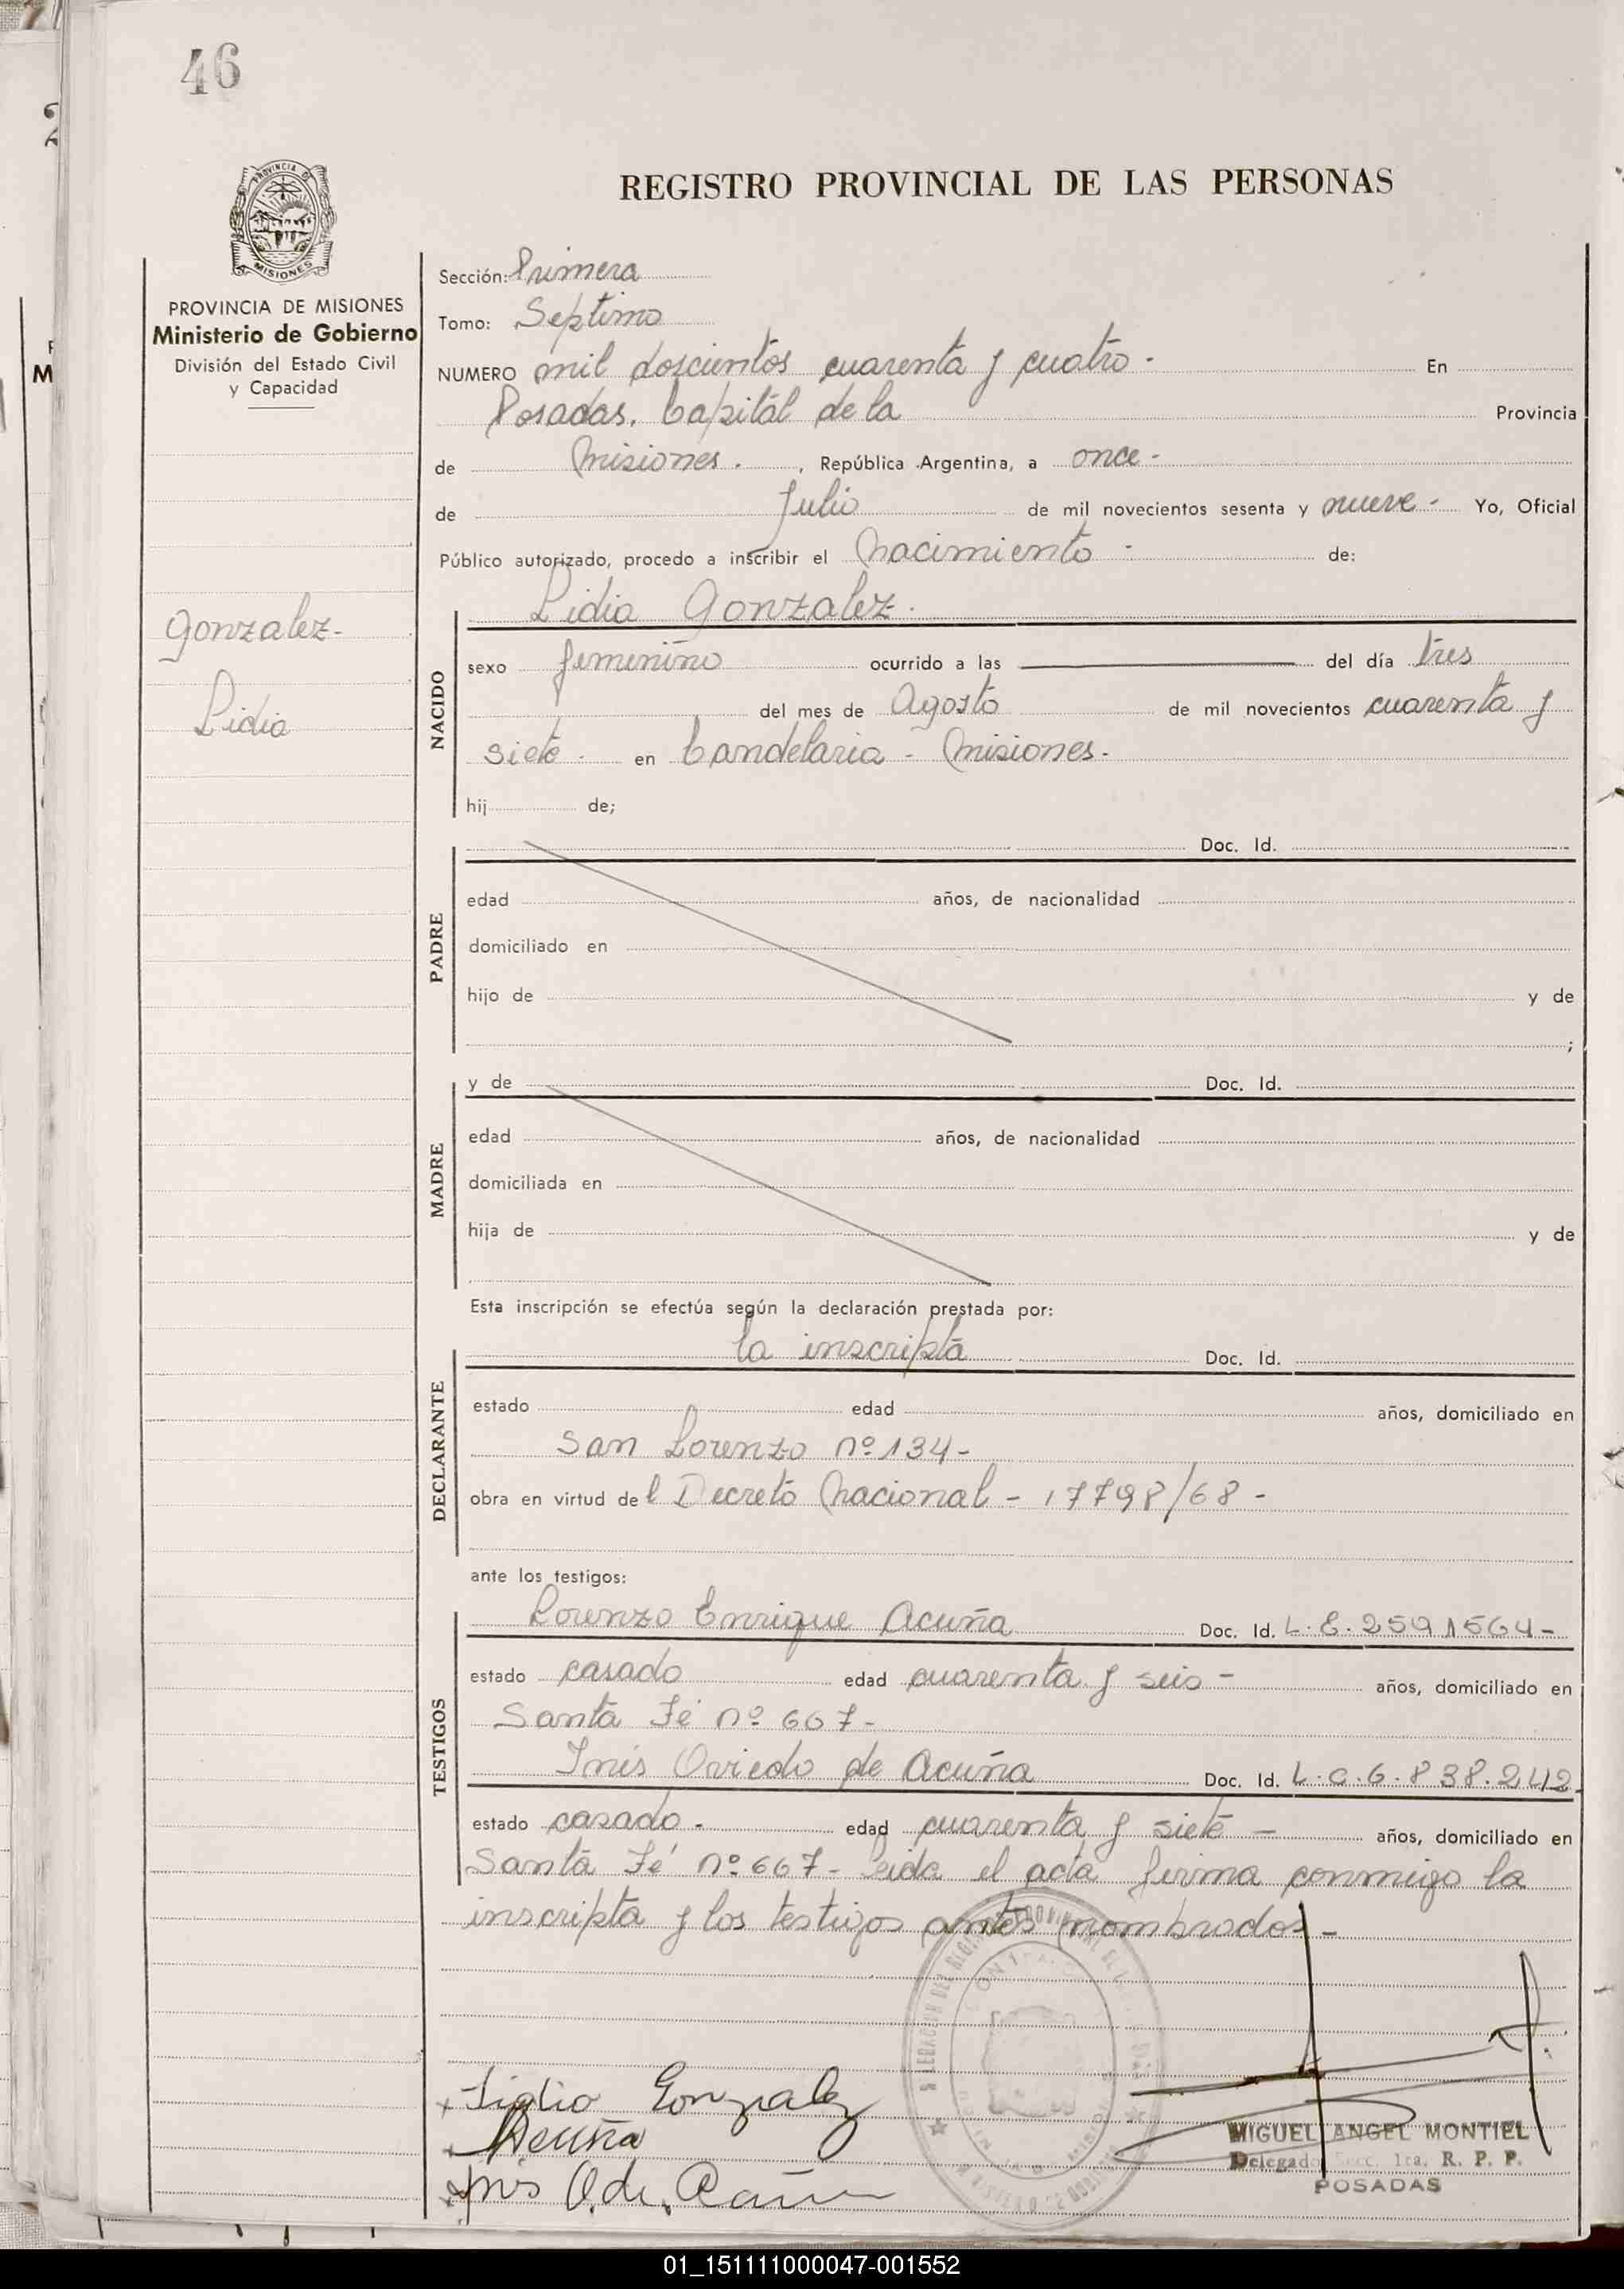 46
PROVINCIA DE
MISIONES
REGISTRO PROVINCIAL DE LAS PERSONAS
PROVINCIA DE MISIONES
Ministerio de Gobierno
División del Estado Civil
y Capacidad
Gonzalez-
Lidia
Sección: Primera
Tomo: Septimo
NUMERO mil doscientos cuarenta y cuatro - En
Posadas, Capital de la Provincia
de Misiones. , República Argentina, a once -
de Julio de mil novecientos sesenta y nueve - Yo, Oficial
Público autorizado, procedo a inscribir el Nacimiento - de:
Lidia Gonzalez.
NACIDO
sexo femenino ocurrido a las del día tres
del mes de Agosto de mil novecientos cuarenta y
siete. en Candelaria - Misiones.
hij de;
PADRE
Doc. Id.
edad años, de nacionalidad
domiciliado en
hijo de y de
;
MADRE
y de Doc. Id.
edad años, de nacionalidad
domiciliada en
hija de y de
Esta inscripción se efectúa según la declaración prestada por:
DECLARANTE
la inscripta Doc. Id.
estado edad años, domiciliado en
San Lorenzo nº 134-
obra en virtud del Decreto Nacional - 17798/68 -
ante los testigos:
TESTIGOS
Lorenzo Enrique Acuña Doc. Id. L.E. 2591564-
estado casado edad cuarenta y seis - años, domiciliado en
Santa Fé nº 667-
Inés Oviedo de Acuña Doc. Id. L.C. 6.838.242
estado casado. edad cuarenta y siete - años, domiciliado en
Santa Fé nº 667- Leida el acta firma conmigo la
inscripta y los testigos antes nombrados-
Lidia Gonzalez
Acuña
Inés O. de Acuña
MIGUEL ANGEL MONTIEL
Delegado Secc. 1ra. R. P. P.
POSADAS
01_151111000047-001552